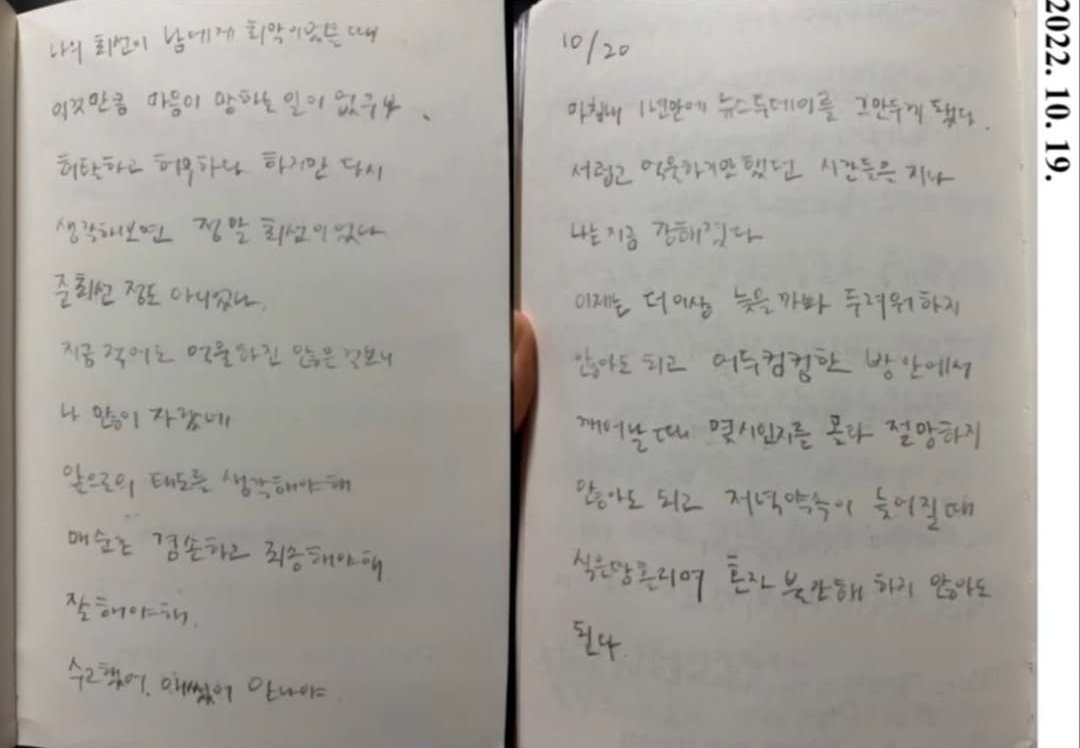 나의 최선이 남에게 최악이었을 때
이것만큼 마음이 망하는 일이 없구나.
허탈하고 허무하다 하지만 다시
생각해보면 정말 최선이었나
준최선 정도 아니었나.
지금 적어도 억울하진 않은 걸보니
나 많이 자랐네
앞으로의 태도를 생각해야해
매순간 겸손하고 죄송해야해
잘해야해.
수고했어. 애썼어 안나야
10/20
마침내 1년만에 뉴스투데이를 그만두게 됐다.
서럽고 억울하기만 했던 시간들은 지나
나는 지금 강해졌다
이제는 더이상 늦을까봐 두려워하지
않아도 되고 어두컴컴한 방안에서
깨어날 때 몇시인지를 몰라 절망하지
않아도 되고 저녁약속이 늦어질때
식은땀 흘리며 혼자 불안해 하지 않아도
된다.
2022. 10. 19.